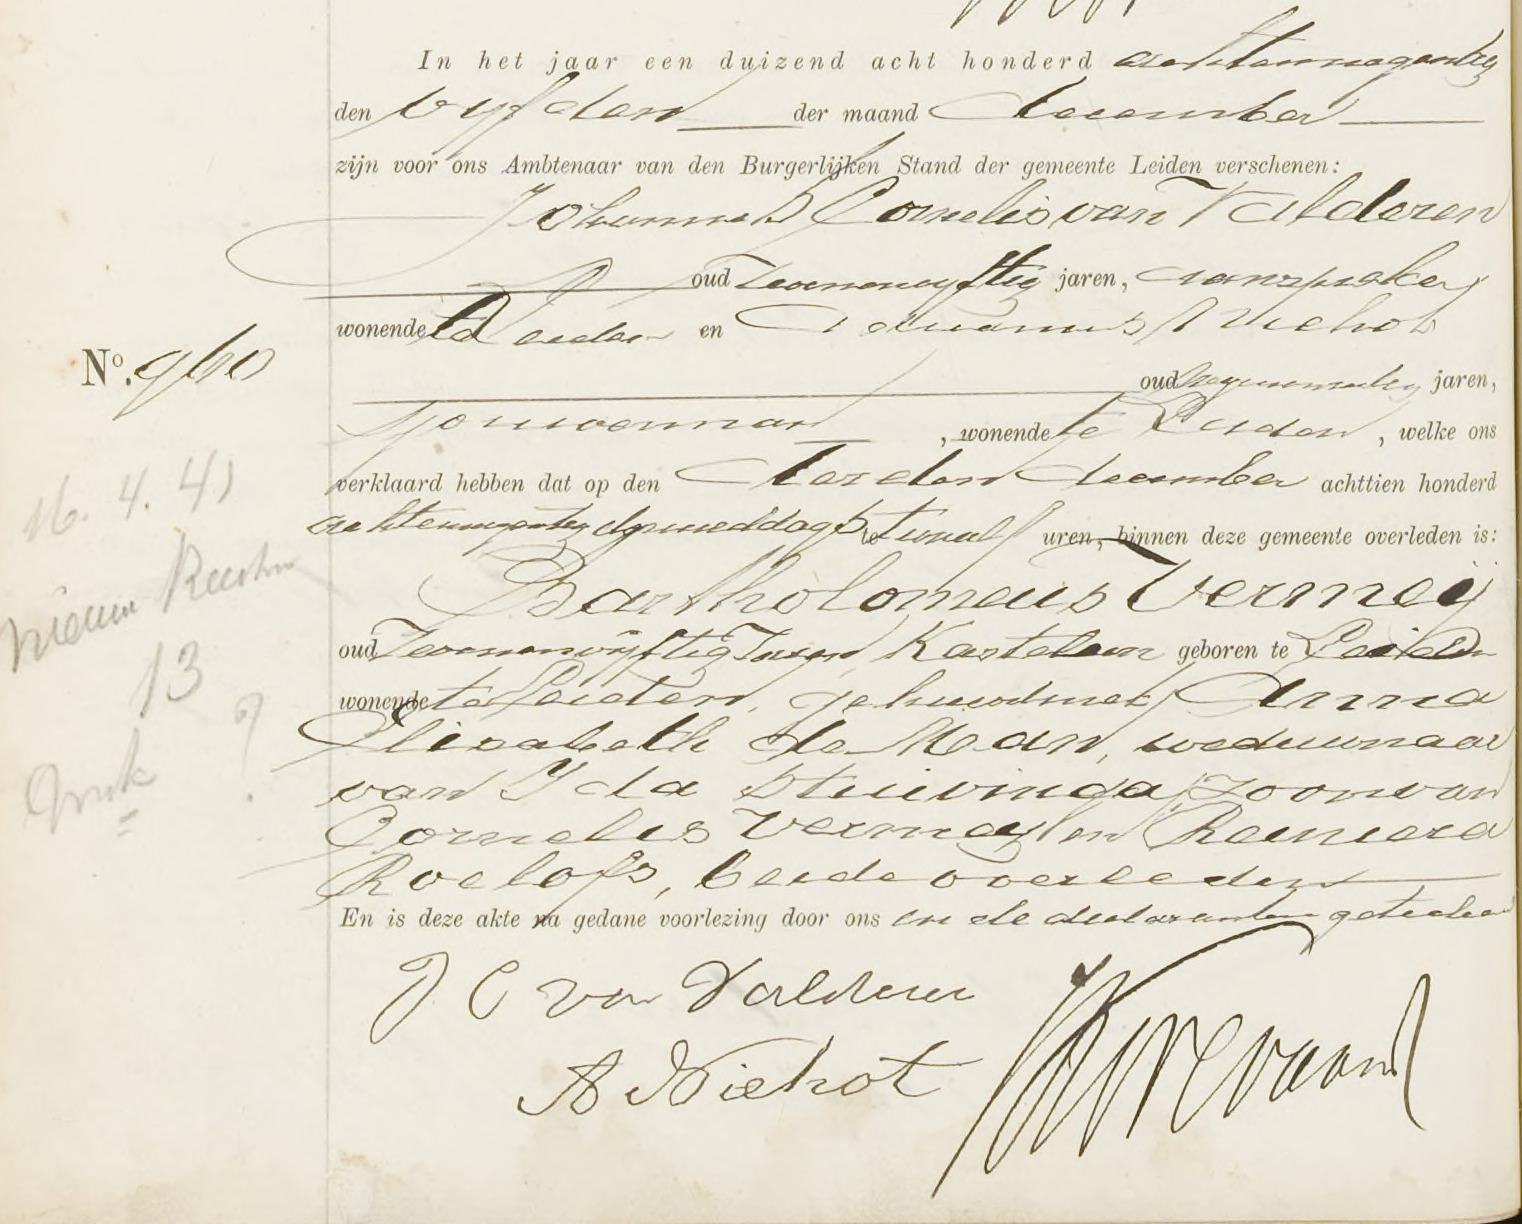 In het jaar een duizend acht honderd achtennegentig
den vijfden der maand December
zijn voor ons Ambtenaar van den Burgerlijken Stand der gemeente Leiden verschenen:
Johannes Cornelis van Valderen
oud Tweeenvijftig jaren, aanspreker
wonende te Leiden en Adrianus Niehot
No. 960
oud jaren,
sjouwerman, wonende te Leiden, welke ons
16. 4. 41
verklaard hebben dat op den derden December achttien honderd
achtennegentig des namiddags te twaalf uren, binnen deze gemeente overleden is:
Nieuw
Bartholomeus Vermeij
13
oud Tweeenvijftig Jaren, Kastelein geboren te Leiden
wonende te Leiden, gehuwd met Anna
Elisabeth de Man, weduwnaar
van Ida Stuivinga, zoon van
Cornelis Vermeij en Reiniera
Roelofs, beide overleden
En is deze akte na gedane voorlezing door ons en de declaranten geteekend
J C van Valderen
A Niehot